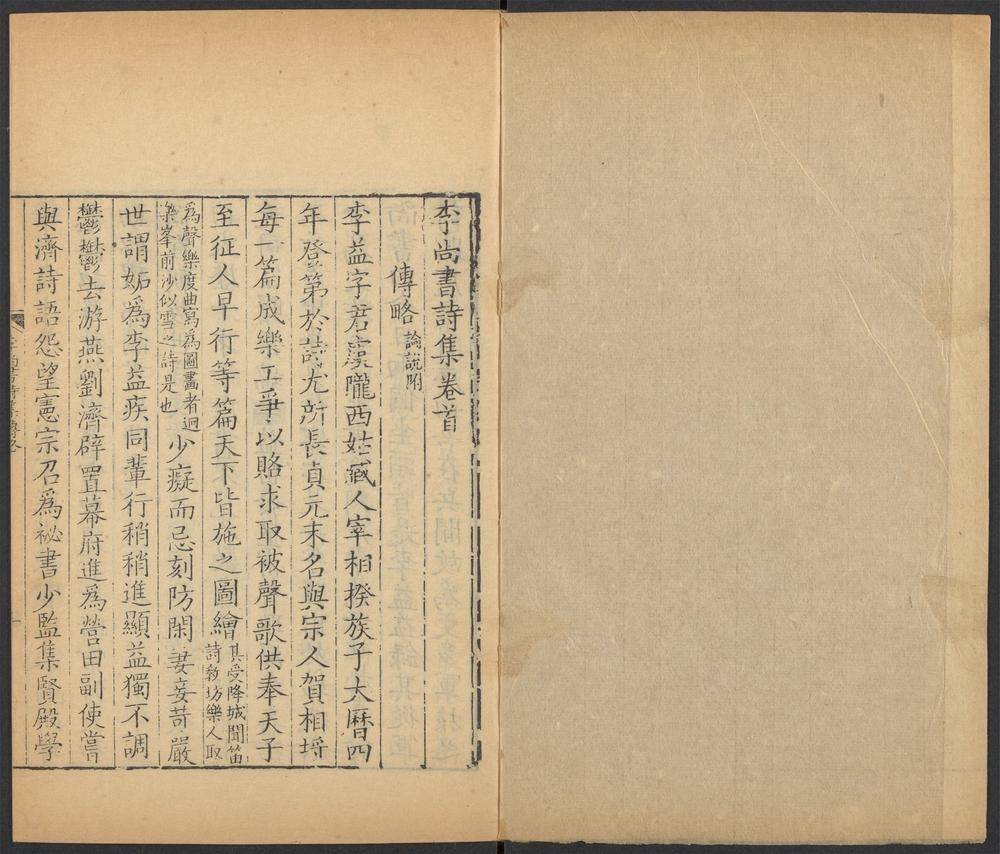 李尚書詩集卷首
傳略 論說附
李益字君虞隴西姑臧人宰相揆族子大曆四
年登第於詩尤所長貞元末名與宗人賀相埒
每一篇成樂工爭以賂求取被聲歌供奉天子
至征人早行等篇天下皆施之圖繪 其受降城聞笛
詩教坊樂人取
為聲樂度曲寫為圖畫者迴
樂峯前沙似雪之詩是也 少癡而忌刻防閑妻妾苛嚴
世謂妬為李益疾同輩行稍稍進顯益獨不調
鬱鬱去游燕劉濟辟置幕府進為營田副使嘗
與濟詩語怨望憲宗召為祕書少監集賢殿學